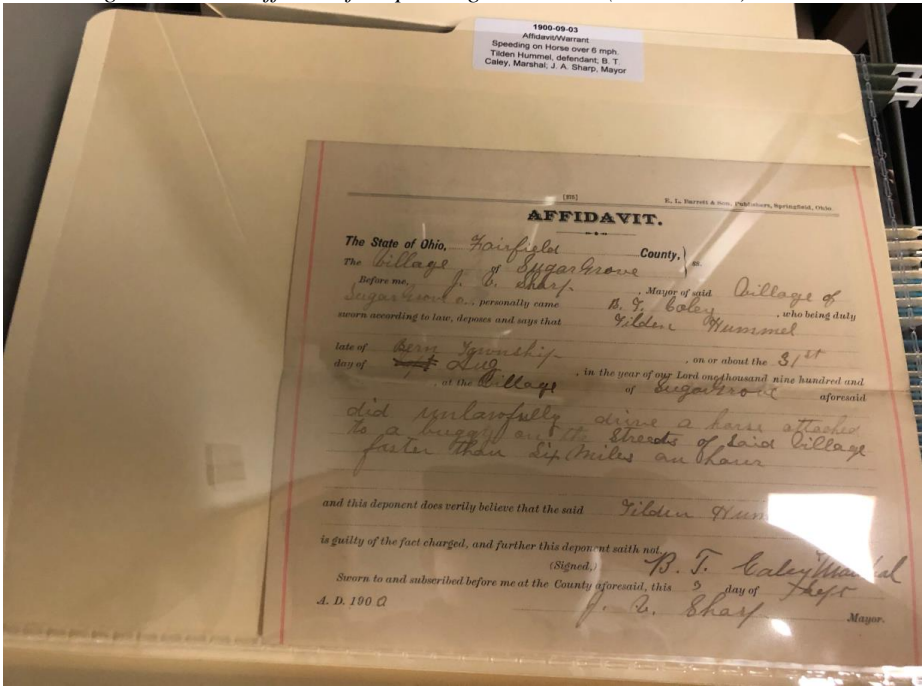 1900-09-03
Affidavit/Warrant
Speeding on Horse over 6 mph.
Tilden Hummel, defendant; B. T.
Caley, Marshal; J. A. Sharp, Mayor
E. L. Barrett & Son, Publishers, Springfield, Ohio.
AFFIDAVIT.
The State of Ohio, Fairfield County, } ss.
The Village of Sugar Grove
Before me, J. C. Sharp, Mayor of said Village of
Sugar Grove O., personally came B. T. Caley, who being duly
sworn according to law, deposes and says that Tilden Hummel
late of Bern Township, on or about the 31st
day of Aug, in the year of our Lord one thousand nine hundred and
, at the Village of Sugar Grove aforesaid
did unlawfully drive a horse attached
to a buggy on the Streets of said Village
faster than Six Miles an hour
and this deponent does verily believe that the said Tilden Hum
is guilty of the fact charged, and further this deponent saith not.
(Signed,) B. T. Caley Marshal
Sworn to and subscribed before me at the County aforesaid, this 3 day of Sept
A. D. 190 0 J. C. Sharp Mayor.